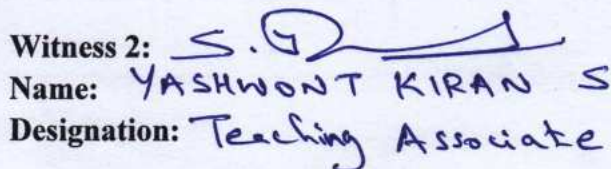 Witness 2: S.
Name: YASHWONT KIRAN S
Designation: Teaching Associate